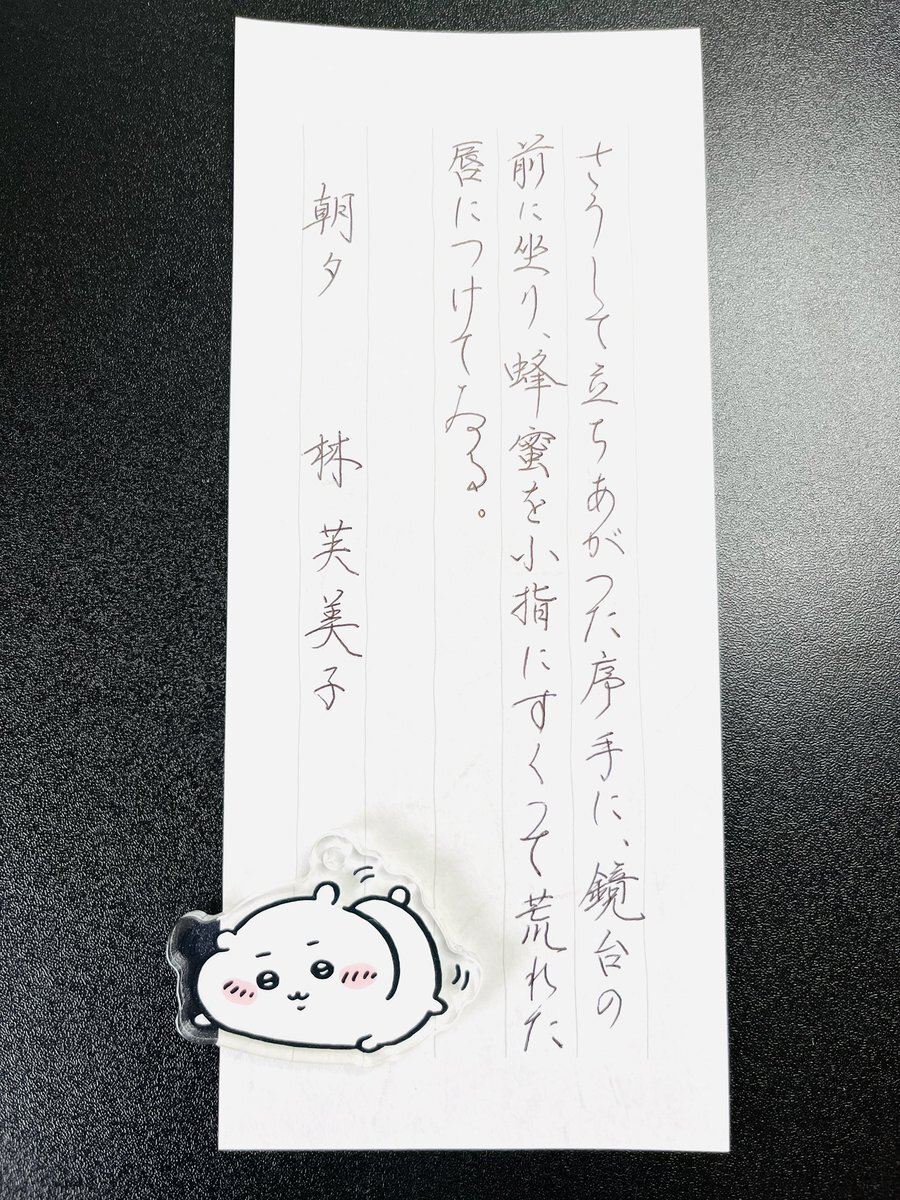 さうして立ちあがつた序手に、鏡台の
前に坐り、蜂蜜を小指にすくつて荒れた
唇につけてゐる。
朝夕　林芙美子